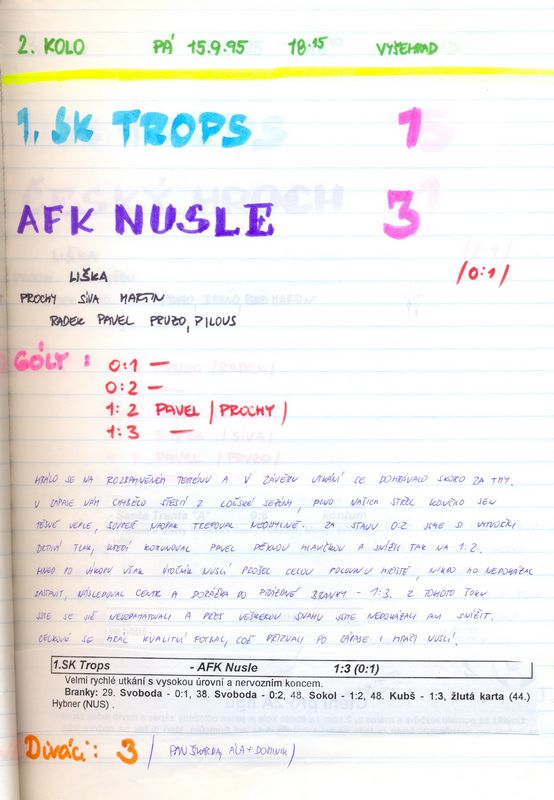 2. KOLO PÁ 15.9.95 18.15 VYŠEHRAD
1. SK TROPS 1
AFK NUSLE 3
/0:1/
LIŠKA
PROCHY SÍVA MARTIN
RADEK PAVEL PRUZO, PILOUS
GÓLY:
0:1 —
0:2 —
1:2 PAVEL / PROCHY /
1:3 —
HRÁLO SE NA ROZBAHNĚNÉM TERÉNU A V ZÁVĚRU UTKÁNÍ SE DOHRÁVALO SKORO ZA TMY.
V ZÁPASE NÁM CHYBĚLO ŠTĚSTÍ Z LOŇSKÉ SEZÓNY, NAŠICH STŘEL KONČILO JEN
TĚSNĚ VEDLE, SOUPEŘ NAOPAK TREFOVAL NEOMYLNĚ. ZA STAVU 0:2 JSME SI VYTVOŘILI
DRTIVÝ TLAK, KTERÝ KORUNOVAL PAVEL PĚKNOU HLAVIČKOU A SNÍŽIL TAK NA 1:2.
HNED PO VÝKOPU VŠAK ÚTOČNÍK NUSLÍ PROŠEL CELOU POLOVINU HŘIŠTĚ, NIKDO HO NEDOKÁZAL
ZASTAVIT, NÁSLEDOVAL CENTR A DORÁŽKA DO PRÁZDNÉ BRANKY - 1:3. Z TOHOTO ŠOKU
JSME SE JIŽ NEVZPAMATOVALI A PŘES VEŠKEROU SNAHU JSME NEDOKÁZALI ANI SNÍŽIT.
CELKOVĚ SE HRÁL KVALITNÍ FOTBAL, COŽ PŘIZNALI PO ZÁPASE I HRÁČI NUSLÍ.
1.SK Trops - AFK Nusle 1:3 (0:1)
Velmi rychlé utkání s vysokou úrovní a nervozním koncem.
Branky: 29. Svoboda - 0:1, 38. Svoboda - 0:2, 48. Sokol - 1:2, 48. Kubš - 1:3, žlutá karta (44.)
Hybner (NUS) .
Diváci: 3 / PAN ŠKARDA, ALA + DOMINIK /